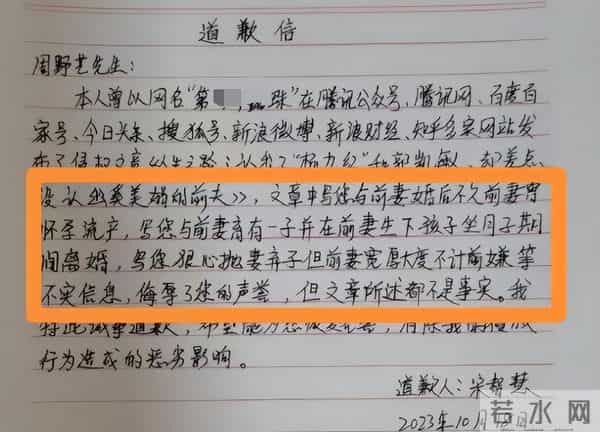 道歉信
周野芒先生:
本人曾以网名"第 珠"在腾讯公众号、腾讯网、百度百
家号、今日头条、搜狐号、新浪微博、新浪财经、知乎多家网站发
没认出奚美娟的前夫》,文章中写您与前妻婚后不久前妻曾
怀孕流产,写您与前妻育有一子并在前妻生下孩子坐月子期
间离婚,写您狠心抛妻弃子但前妻宽厚大度不计前嫌等
不实信息,侮辱了您的声誉,但文章所述都不是事实。我
行为造成的恶劣影响。
道歉人:宋
2023年10月 日
若水网